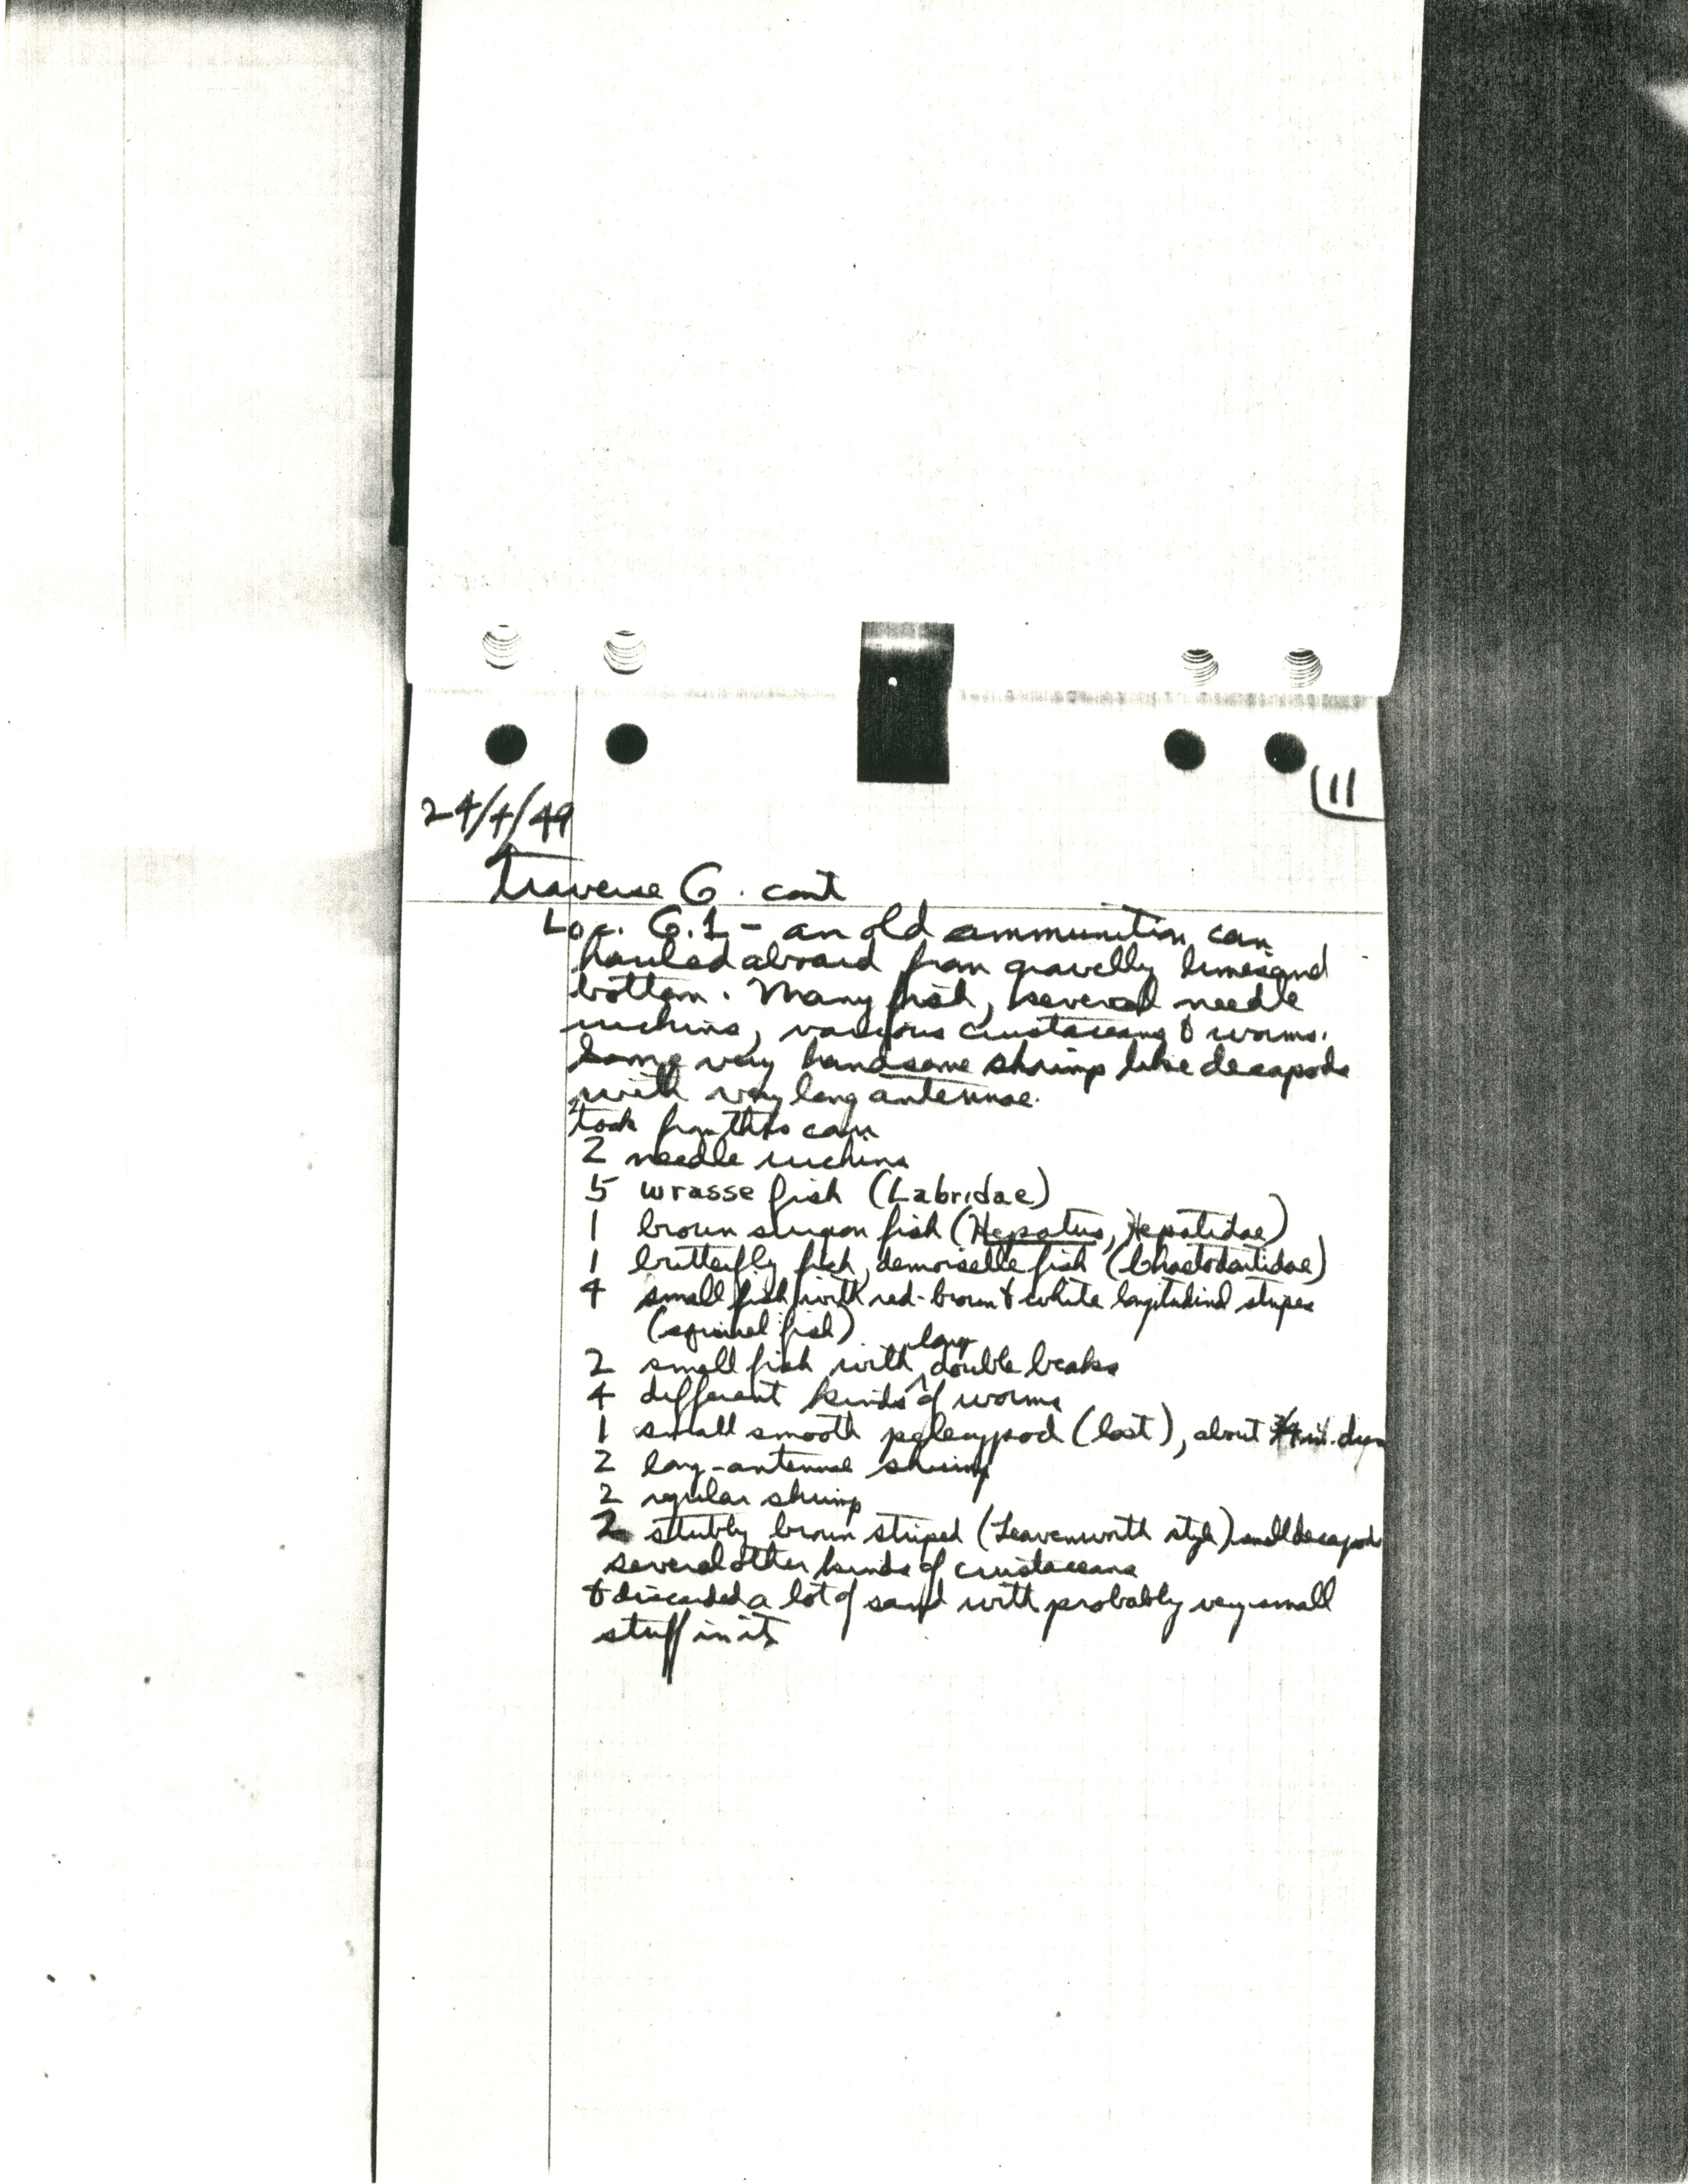 11
24/4/49
Traverse G. cont
Loc. G.1 - an old ammunition can
hauled aboard from gravelly limesand
bottom. Many fish, several needle
urchins, various crustaceans & worms.
Some very handsome shrimp like decapods
with very long antennae.
Took from this can
2 needle urchins
5 wrasse fish (Labridae)
1 brown surgeon fish (Hepatus, Hepatidae)
1 butterfly fish, demoiselle fish (Chaetodontidae)
4 small fish with red-brown & white longitudinal stripes
(squirrel fish)
2 small fish with long double beaks
4 different kinds of worms
1 small smooth pelecypod (lost), about
2 long-antennae shrimp
2 regular shrimp
2 stubby brown striped (Leavenworth style) small decapods
several other kinds of crustaceans
& discarded a lot of sand with probably very small
stuff in it